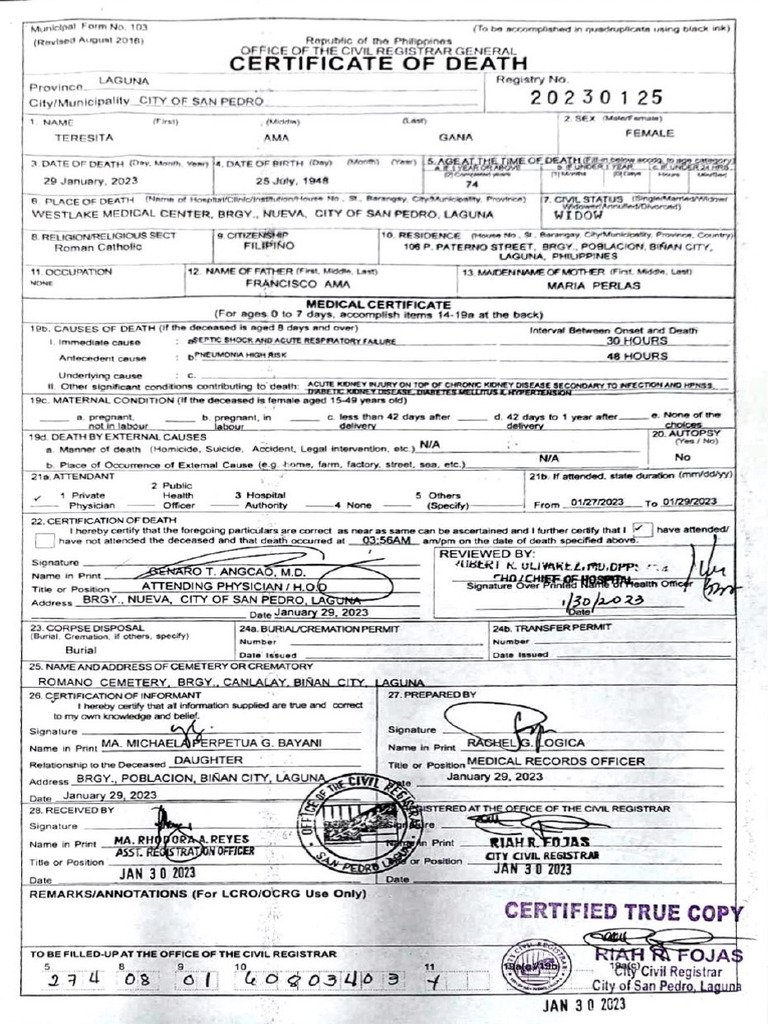 Municipal Form No. 103
(To be accomplished in quadruplicate using black ink)
(Revised August 2016)
Republic of the Philippines
OFFICE OF THE CIVIL REGISTRAR GENERAL
CERTIFICATE OF DEATH
Province LAGUNA
Registry No.
City/Municipality CITY OF SAN PEDRO
20230125
1. NAME (First) (Middle) (Last)
2. SEX (Male/Female)
TERESITA AMA GANA
FEMALE
3. DATE OF DEATH (Day, Month, Year)
4. DATE OF BIRTH (Day) (Month) (Year)
5. AGE AT THE TIME OF DEATH (Fill-in below accdg. to age category)
a. IF 1 YEAR OR ABOVE b. IF UNDER 1 YEAR c. IF UNDER 24 HRS
[2] Completed years [1] Months [0] Days Hours Min/Sec
29 January, 2023
25 July, 1948
74
6. PLACE OF DEATH (Name of Hospital/Clinic/Institution/House No., St., Barangay, City/Municipality, Province)
7. CIVIL STATUS (Single/Married/Widow/
Widower/Annulled/Divorced)
WESTLAKE MEDICAL CENTER, BRGY., NUEVA, CITY OF SAN PEDRO, LAGUNA
WIDOW
8. RELIGION/RELIGIOUS SECT
9. CITIZENSHIP
10. RESIDENCE (House No., St., Barangay, City/Municipality, Province, Country)
Roman Catholic
FILIPINO
106 P. PATERNO STREET, BRGY., POBLACION, BIÑAN CITY,
LAGUNA, PHILIPPINES
11. OCCUPATION
12. NAME OF FATHER (First, Middle, Last)
13. MAIDEN NAME OF MOTHER (First, Middle, Last)
NONE
FRANCISCO AMA
MARIA PERLAS
MEDICAL CERTIFICATE
(For ages 0 to 7 days, accomplish items 14-19a at the back)
19b. CAUSES OF DEATH (If the deceased is aged 8 days and over)
Interval Between Onset and Death
I. Immediate cause : a. SEPTIC SHOCK AND ACUTE RESPIRATORY FAILURE
30 HOURS
Antecedent cause : b. PNEUMONIA HIGH RISK
48 HOURS
Underlying cause : c.
II. Other significant conditions contributing to death: ACUTE KIDNEY INJURY ON TOP OF CHRONIC KIDNEY DISEASE SECONDARY TO INFECTION AND HPNSS,
DIABETIC KIDNEY DISEASE, DIABETES MELLITUS II, HYPERTENSION
19c. MATERNAL CONDITION (If the deceased is female aged 15-49 years old)
a. pregnant, b. pregnant, in c. less than 42 days after d. 42 days to 1 year after e. None of the
not in labour labour delivery delivery choices
19d. DEATH BY EXTERNAL CAUSES
20. AUTOPSY
(Yes / No)
a. Manner of death (Homicide, Suicide, Accident, Legal intervention, etc.) N/A
No
b. Place of Occurrence of External Cause (e.g. home, farm, factory, street, sea, etc.) N/A
21a. ATTENDANT
21b. If attended, state duration (mm/dd/yy)
✓ 1 Private 2 Public 3 Hospital 4 None 5 Others
Physician Health Authority (Specify)
Officer
From 01/27/2023 To 01/29/2023
22. CERTIFICATION OF DEATH
I hereby certify that the foregoing particulars are correct as near as same can be ascertained and I further certify that I ✓ have attended/
have not attended the deceased and that death occurred at 03:56AM am/pm on the date of death specified above.
Signature
REVIEWED BY:
Name in Print GENARO T. ANGCAO, M.D.
Title or Position ATTENDING PHYSICIAN / H.O.D
CHO/CHIEF OF HOSPITAL
Signature Over Printed Name of Health Officer
Address BRGY., NUEVA, CITY OF SAN PEDRO, LAGUNA
1/30/2023
Date January 29, 2023
Date
23. CORPSE DISPOSAL
24a. BURIAL/CREMATION PERMIT
24b. TRANSFER PERMIT
(Burial, Cremation, if others, specify)
Number
Number
Burial
Date Issued
Date Issued
25. NAME AND ADDRESS OF CEMETERY OR CREMATORY
ROMANO CEMETERY, BRGY., CANLALAY, BIÑAN CITY, LAGUNA
26. CERTIFICATION OF INFORMANT
I hereby certify that all information supplied are true and correct
to my own knowledge and belief.
Signature
Name in Print MA. MICHAELA PERPETUA G. BAYANI
Relationship to the Deceased DAUGHTER
Address BRGY., POBLACION, BIÑAN CITY, LAGUNA
Date January 29, 2023
27. PREPARED BY
Signature
Name in Print RACHEL G. LOGICA
Title or Position MEDICAL RECORDS OFFICER
Date January 29, 2023
28. RECEIVED BY
Signature
Name in Print MA. RHODORA A. REYES
Title or Position ASST. REGISTRATION OFFICER
Date JAN 30 2023
OFFICE OF THE CIVIL REGISTRAR
SAN PEDRO LAGUNA
REGISTERED AT THE OFFICE OF THE CIVIL REGISTRAR
Signature
Name in Print RIAH R. FOJAS
Title or Position CITY CIVIL REGISTRAR
Date JAN 30 2023
REMARKS/ANNOTATIONS (For LCRO/OCRG Use Only)
CERTIFIED TRUE COPY
TO BE FILLED-UP AT THE OFFICE OF THE CIVIL REGISTRAR
RIAH R. FOJAS
5 8 9 10 11 19a(a)/19b)
City Civil Registrar
274 08 01 60803403 Y
City of San Pedro, Laguna
JAN 30 2023